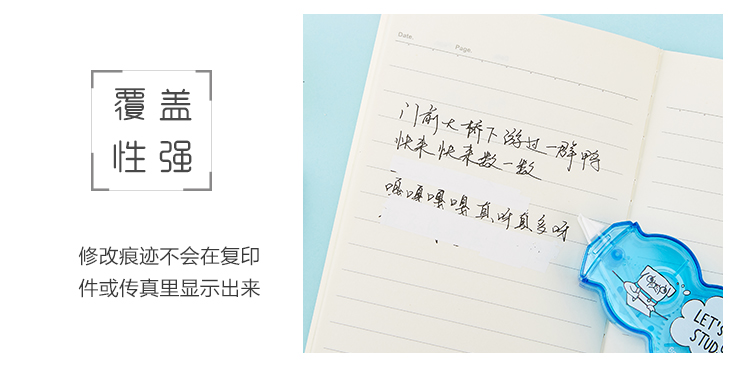 覆盖
性强
修改痕迹不会在复印
件或传真里显示出来
Date.
Page.
门前大桥下游过一群鸭
快来快来数一数
嘎嘎嘎嘎真呀真多呀
LET'S
STUD